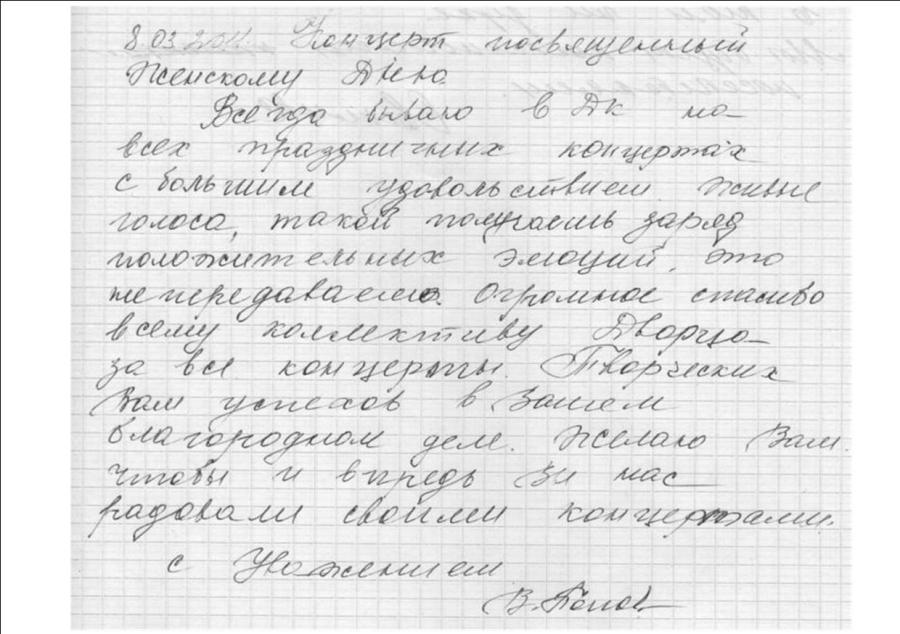 8.03.2011. Концерт посвященный
Женскому Дню.
Всегда бываю в ДК на
всех праздничных концертах
с большим удовольствием живые
голоса, такой получаешь заряд
положительных эмоций, это
непередаваемо. Огромное спасибо
всему коллективу Дворца
за все концерты. Творческих
Вам успехов в Вашем
благородном деле. Желаю Вам.
чтобы и впредь Вы нас
радовали своими концертами.
с Уважением
В.